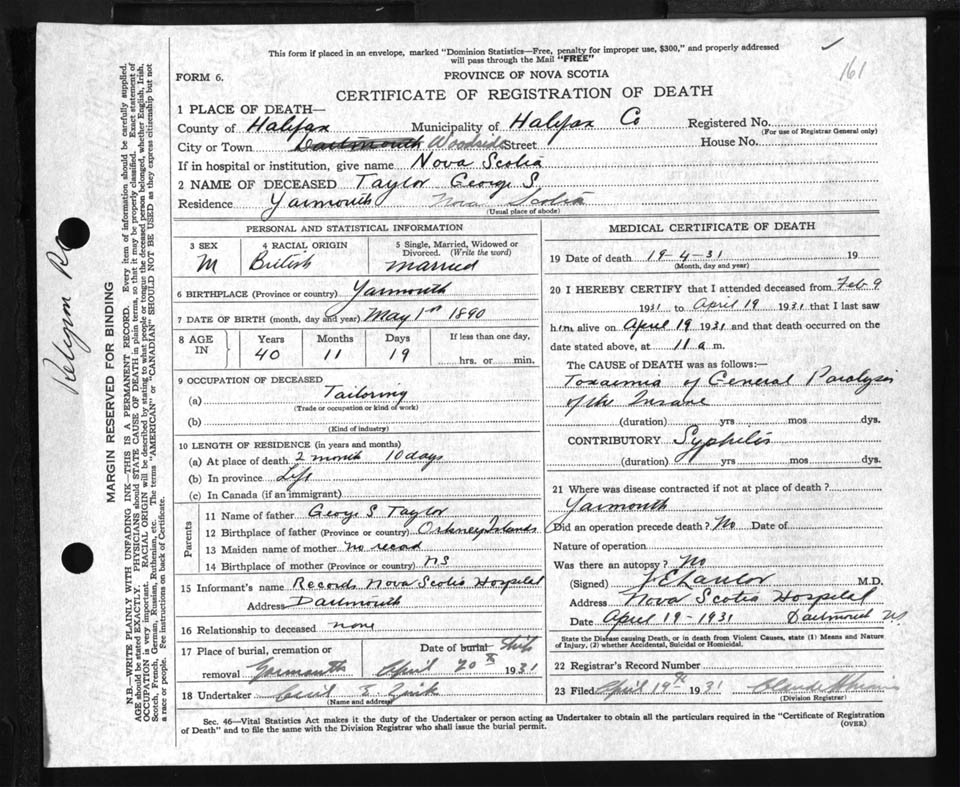 This form if placed in an envelope, marked "Dominion Statistics—Free, penalty for improper use, $300," and properly addressed
will pass through the Mail "FREE"
161
FORM 6.
PROVINCE OF NOVA SCOTIA
CERTIFICATE OF REGISTRATION OF DEATH
1 PLACE OF DEATH—
County of Halifax Municipality of Halifax Co Registered No.
(For use of Registrar General only)
City or Town Dartmouth Woodside Street House No.
If in hospital or institution, give name Nova Scotia
2 NAME OF DECEASED Taylor George S.
Residence Yarmouth Nova Scotia
(Usual place of abode)
PERSONAL AND STATISTICAL INFORMATION
3 SEX 4 RACIAL ORIGIN 5 Single, Married, Widowed or
Divorced. (Write the word)
M British Married
6 BIRTHPLACE (Province or country) Yarmouth
7 DATE OF BIRTH (month, day and year) May 1st 1890
8 AGE IN Years Months Days If less than one day,
40 11 19 hrs. or min.
9 OCCUPATION OF DECEASED
(a) Tailoring
(Trade or occupation or kind of work)
(b)
(Kind of industry)
10 LENGTH OF RESIDENCE (in years and months)
(a) At place of death 2 month 10 days
(b) In province Life
(c) In Canada (if an immigrant)
Parents
11 Name of father George S Taylor
12 Birthplace of father (Province or country) Orkney Islands
13 Maiden name of mother no record
14 Birthplace of mother (Province or country) NS
15 Informant's name Records Nova Scotia Hospital
Address Dartmouth
16 Relationship to deceased none
17 Place of burial, cremation or Date of burial
removal Yarmouth April 20th 1931
18 Undertaker Cecil E.
(Name and address)
MEDICAL CERTIFICATE OF DEATH
19 Date of death 19-4-31 19
(Month, day and year)
20 I HEREBY CERTIFY that I attended deceased from Feb 9
1931 to April 19 1931 that I last saw
him alive on April 19 1931 and that death occurred on the
date stated above, at 11 a m.
The CAUSE OF DEATH was as follows:—
Toxaemia of General Paralysis
of the Insane
(duration) yrs mos dys.
CONTRIBUTORY Syphilis
(duration) yrs mos dys.
21 Where was disease contracted if not at place of death?
Yarmouth
Did an operation precede death? No Date of
Nature of operation
Was there an autopsy? No
(Signed) M.D.
Address Nova Scotia Hospital
Date April 19-1931 Dartmouth
State the Disease causing Death, or in death from Violent Causes, state (1) Means and Nature
of Injury, (2) whether Accidental, Suicidal or Homicidal.
22 Registrar's Record Number
23 Filed April 19th 1931
(Division Registrar)
Sec. 46—Vital Statistics Act makes it the duty of the Undertaker or person acting as Undertaker to obtain all the particulars required in the "Certificate of Registration
of Death" and to file the same with the Division Registrar who shall issue the burial permit.
(OVER)
MARGIN RESERVED FOR BINDING
N.B.—WRITE PLAINLY WITH UNFADING INK—THIS IS A PERMANENT RECORD. Every item of information should be carefully supplied.
AGE should be stated EXACTLY. PHYSICIANS should STATE CAUSE OF DEATH in plain terms, so that it may be properly classified. Exact statement of
OCCUPATION is very important. RACIAL ORIGIN will be described by stating to what people or tongue the deceased person belonged, whether English, Irish,
Scotch, French, German, Russian, Ruthenian, etc. The terms "AMERICAN" or "CANADIAN" SHOULD NOT BE USED as they express citizenship but not
a race or people. Fee instructions on back of Certificate.